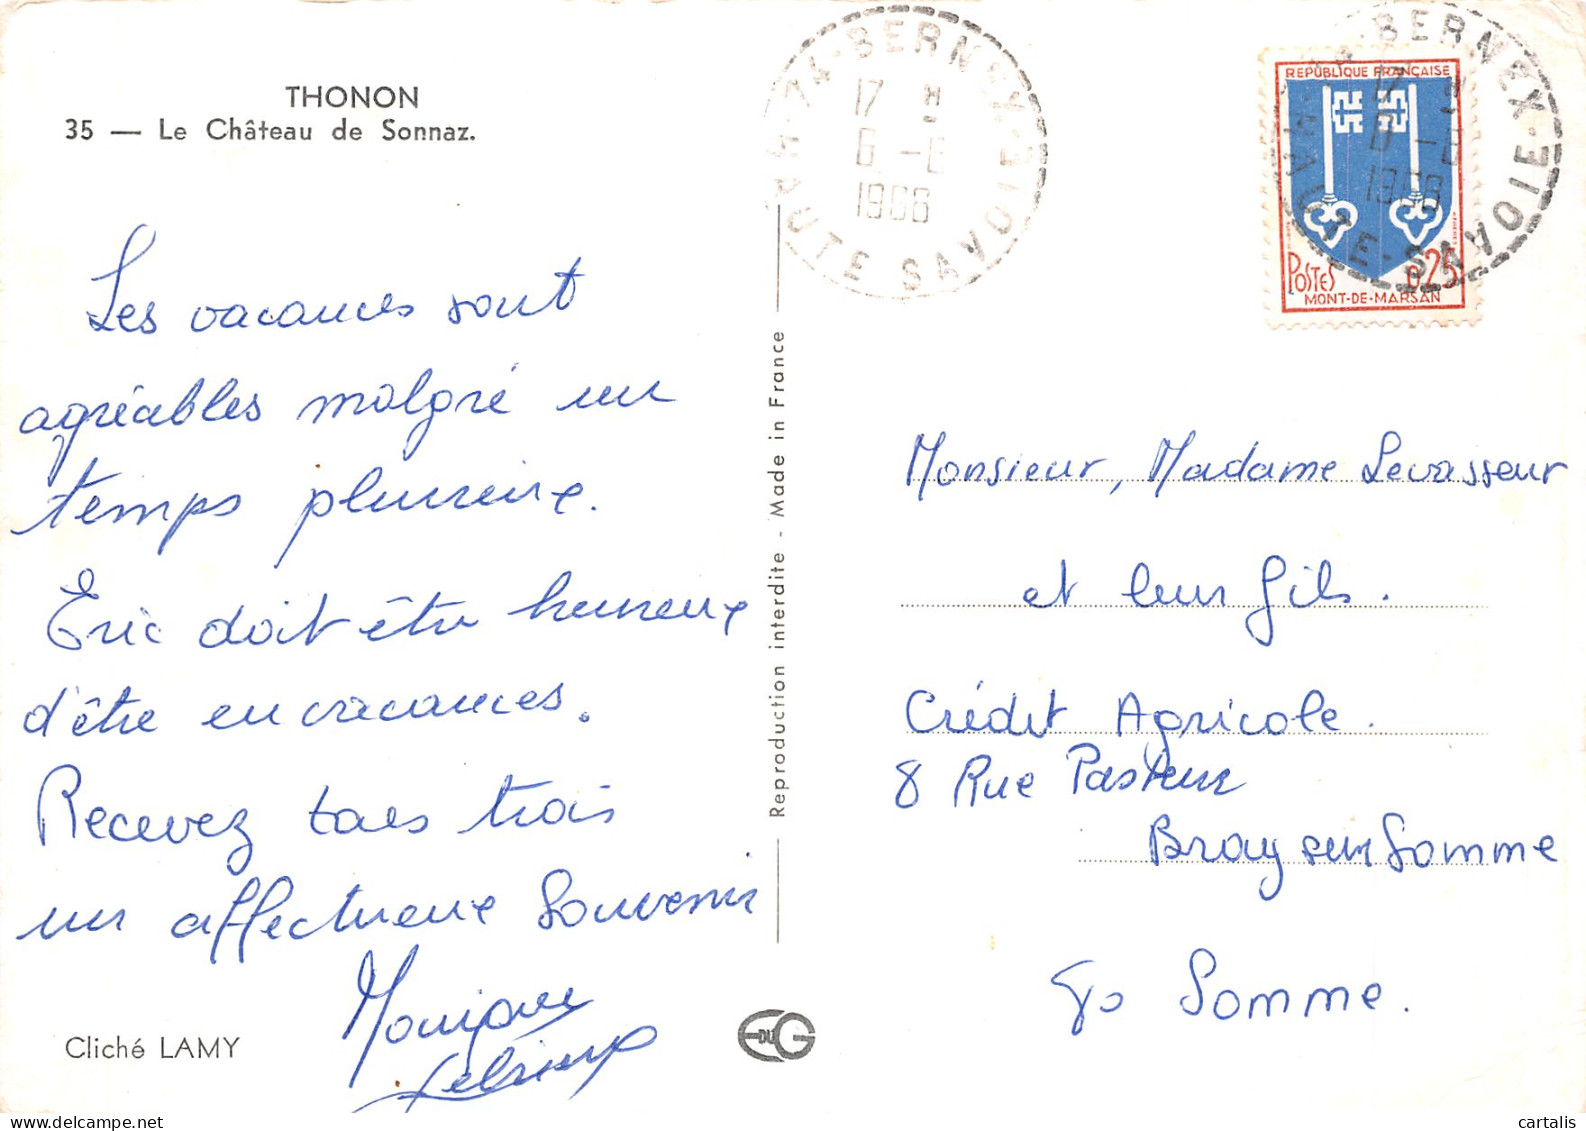 THONON
35 — Le Château de Sonnaz.
Les vacances sont
agréables malgré un
temps pluvieux.
Eric doit être heureux
d'être en vacances.
Recevez tous trois
un affectueux souvenir
Monique
Cliché LAMY
Reproduction interdite - Made in France
EDUG
74 - BERNEX
17 H
6 - 6
1966
HAUTE SAVOIE
74 - BERNEX
17 H
6 - 6
1966
HAUTE-SAVOIE
REPUBLIQUE FRANÇAISE
POSTES 0,25
MONT-DE-MARSAN
Monsieur, Madame Levasseur
et leur fils.
Crédit Agricole.
8 Rue Pasteur
Bray sur Somme
80 Somme.
delcampe.net
cartalis